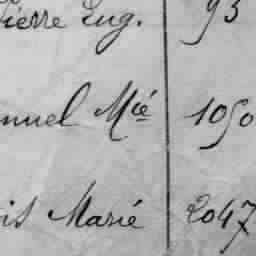 Pierre Eug. 93
nuel Mié 1050
is Marié 2047